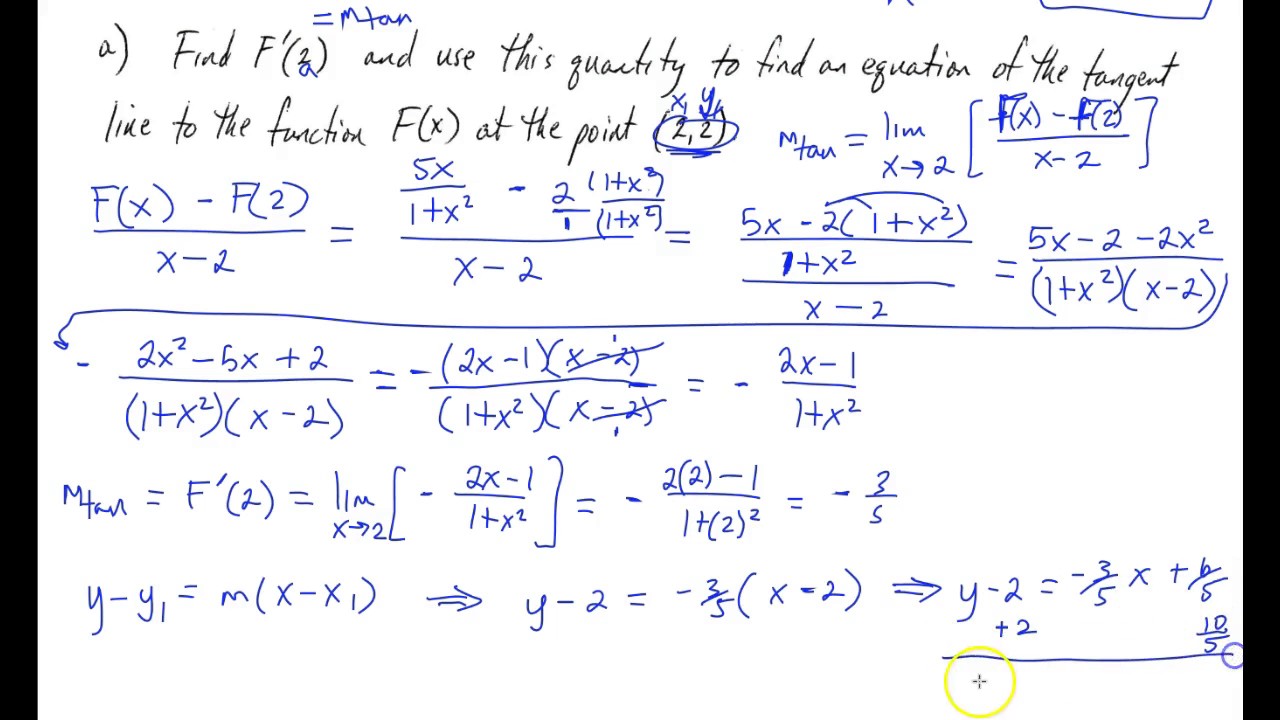 = mtan
a) Find F'(2) and use this quantity to find an equation of the tangent
a
line to the function F(x) at the point (2,2)
x₁ y₁
mtan = lim x→2 [ (F(x) - F(2)) / (x-2) ]
(F(x) - F(2)) / (x-2) = (5x/(1+x²) - 2/1 (1+x²)/(1+x²)) / (x-2) = ((5x - 2(1+x²)) / (1+x²)) / (x-2) = (5x-2-2x²) / ((1+x²)(x-2))
- (2x²-5x+2) / ((1+x²)(x-2)) = - (2x-1)(x-2) / ((1+x²)(x-2)) = - (2x-1) / (1+x²)
mtan = F'(2) = lim x→2 [ - (2x-1)/(1+x²) ] = - (2(2)-1) / (1+(2)²) = - 3/5
y-y₁ = m(x-x₁) ⇒ y-2 = -3/5(x-2) ⇒ y-2 = -3/5 x + 6/5
+2 10/5